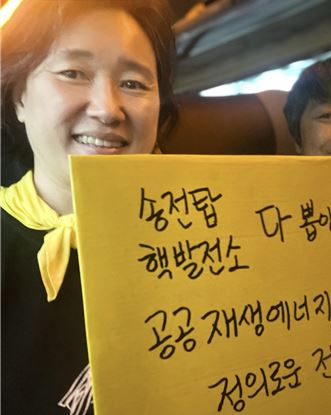 송전탑
핵발전소 다 뽑아
공공 재생에너지
정의로운 전